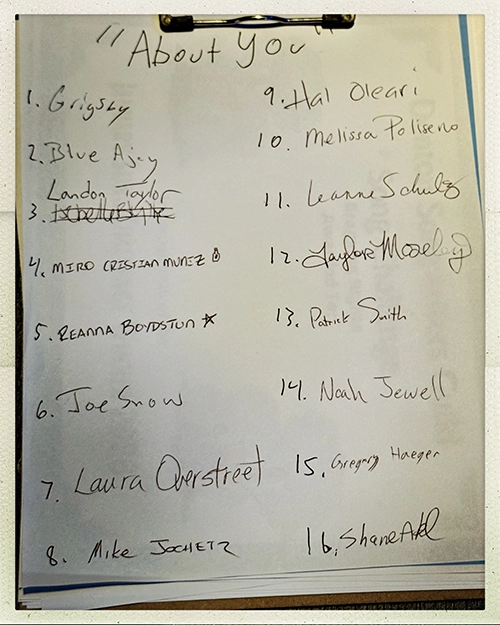 "About You"
1. Grigsby
2. Blue Ajay
Landon Taylor
3.
4. MIRO CRISTIAN MUNIZ
5. REANNA BOYDSTUN
6. Joe Snow
7. Laura Overstreet
8. Mike JOCHETZ
9. Hal Oleari
10. Melissa Poliseno
11. Leanne Schulz
12. Taylore Moseley
13. Patrick Smith
14. Noah Jewell
15. Gregory Haeger
16. Shane